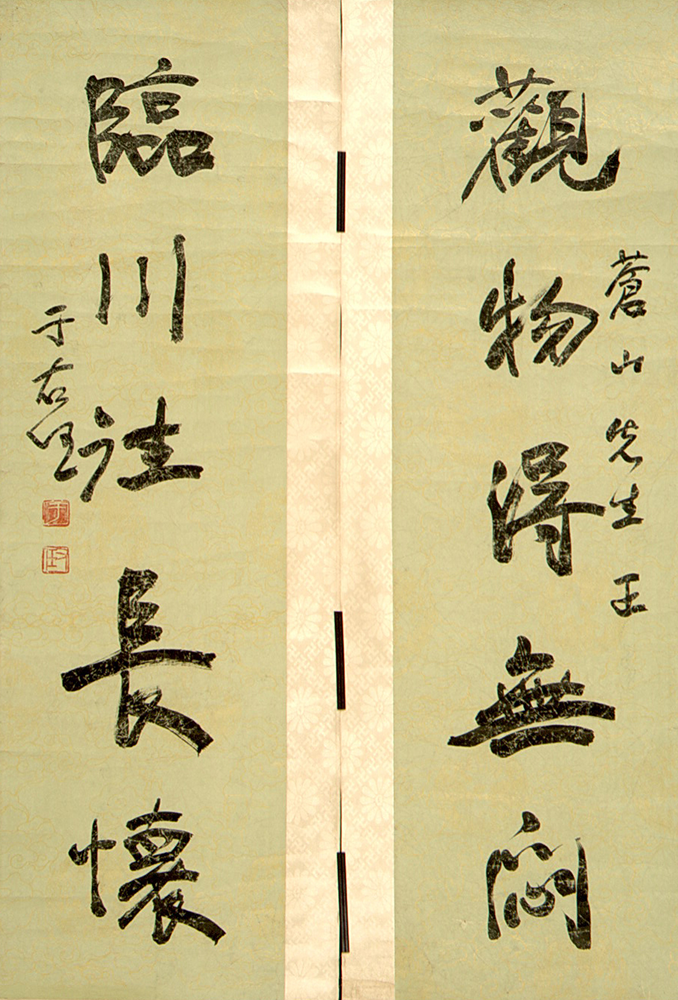 觀物得無悶
蒼山先生正
臨川長懷
于右任